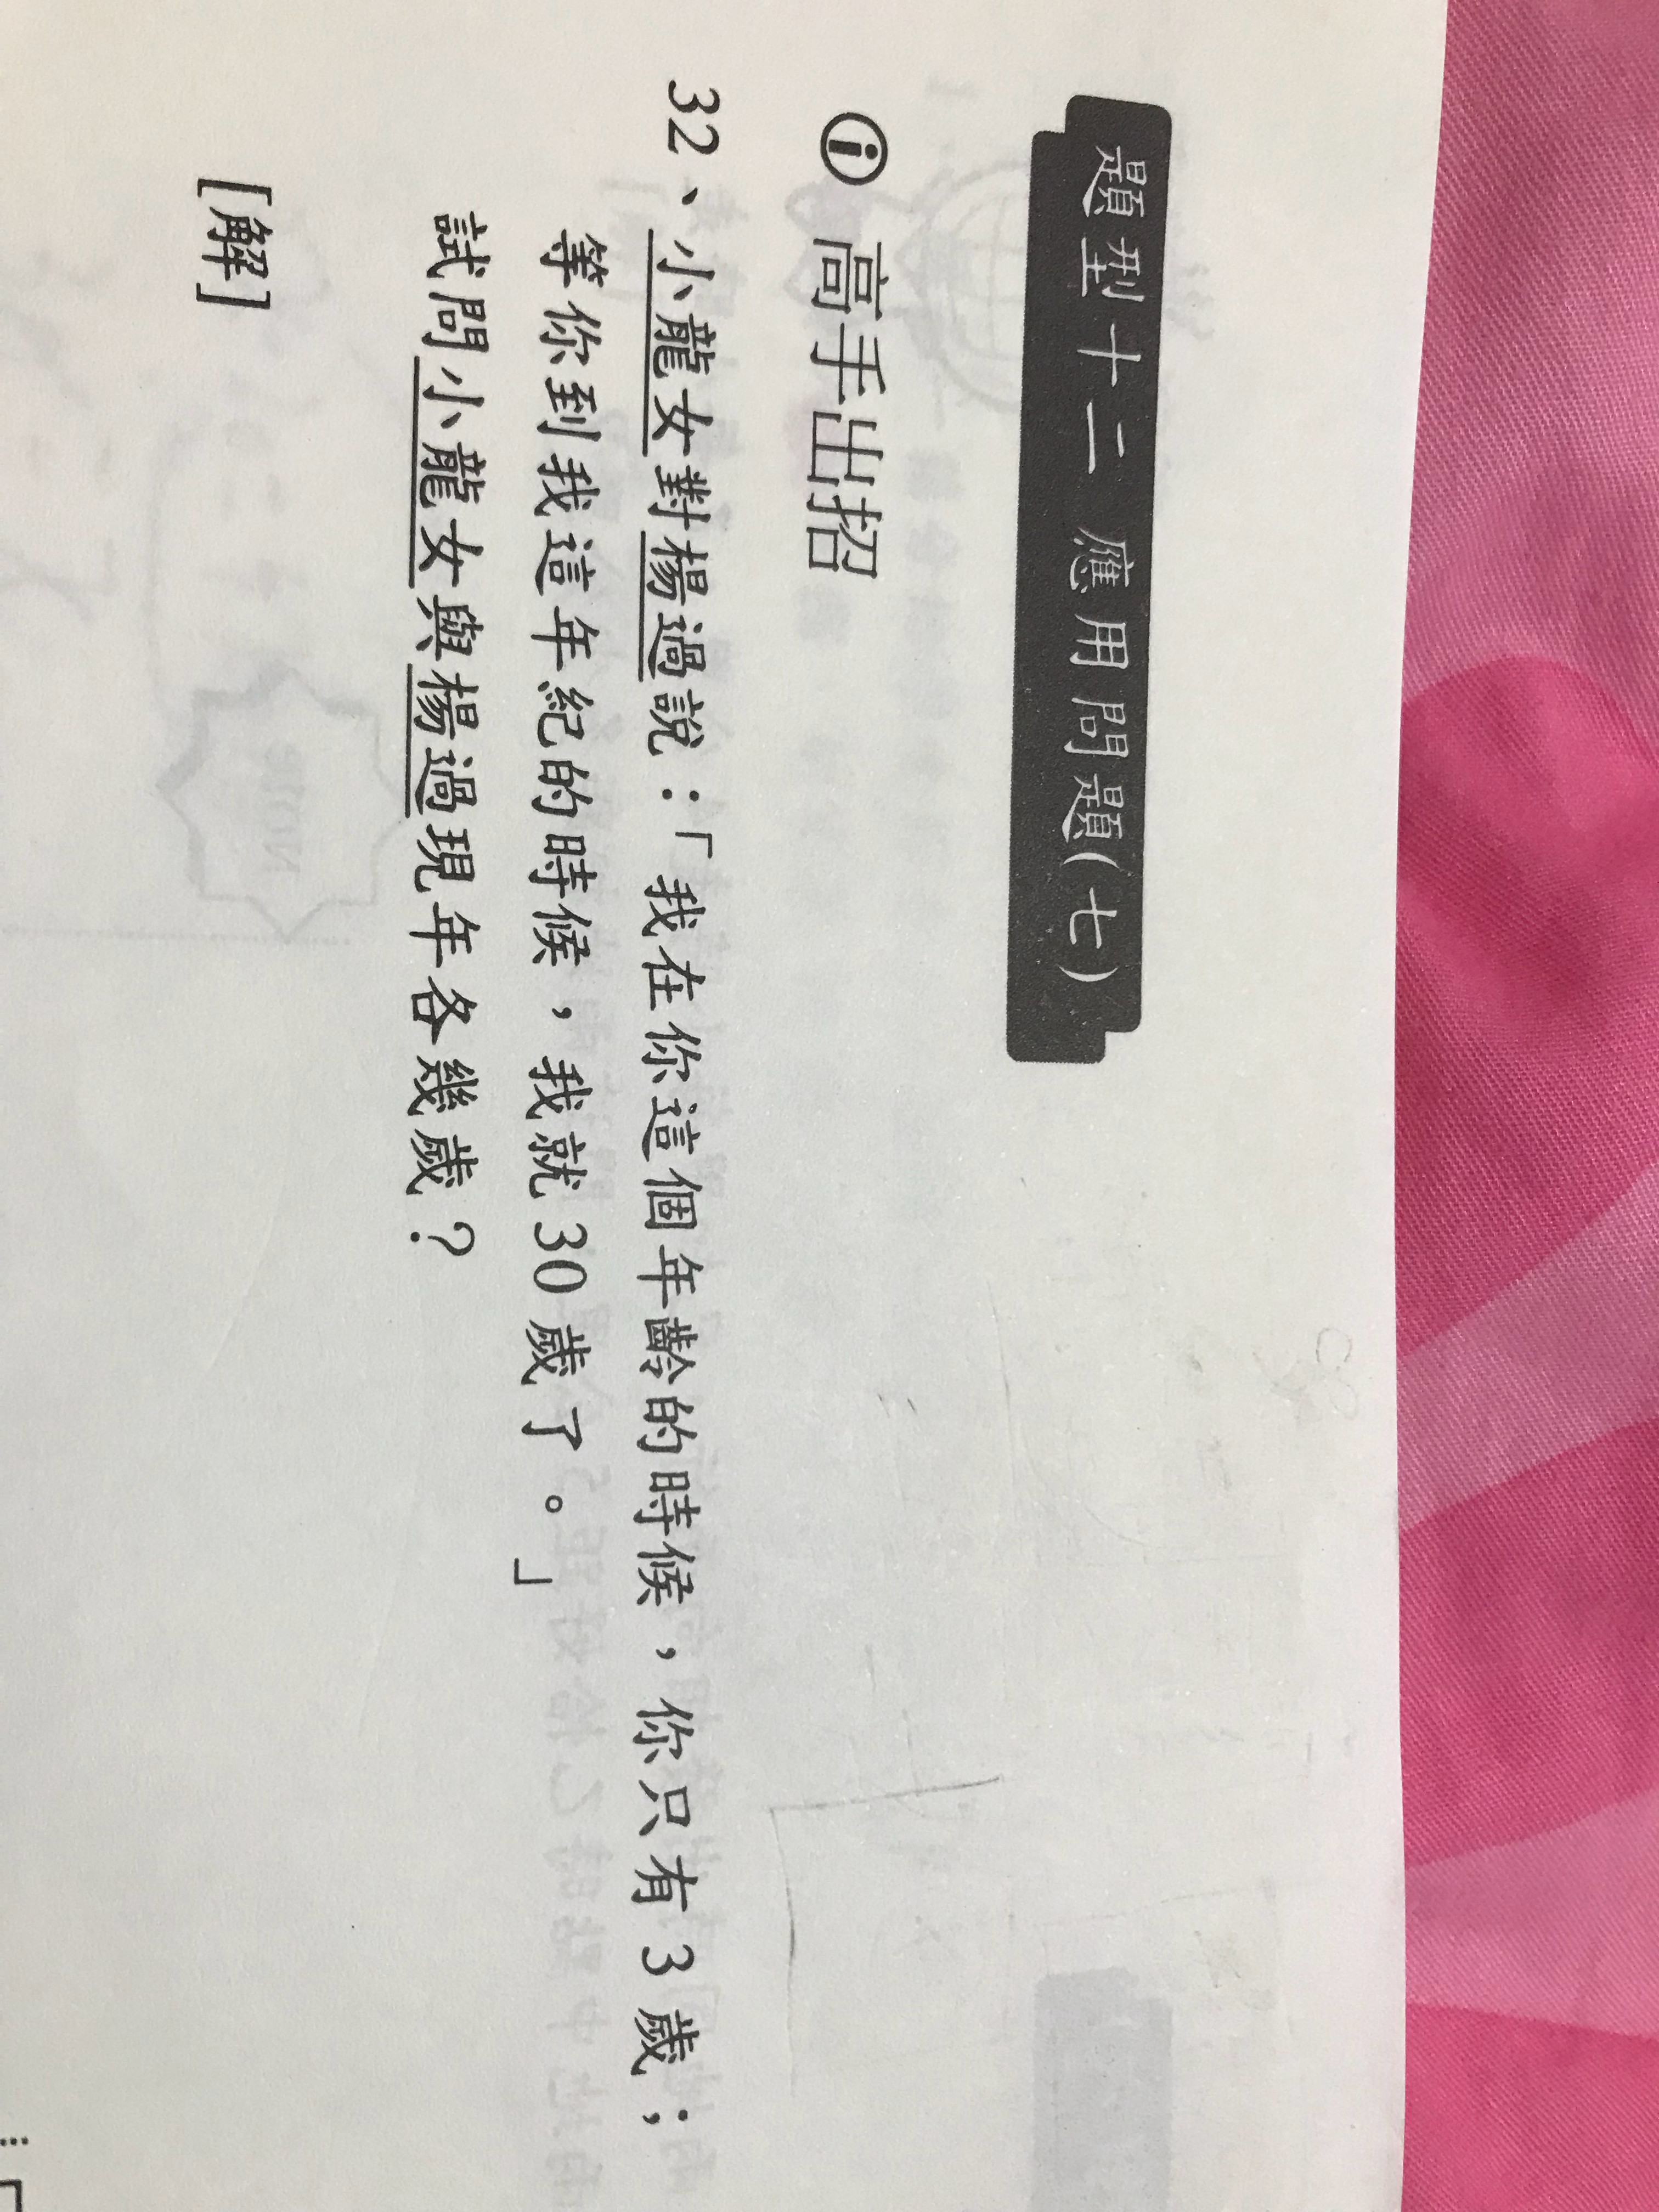 題型十二 應用問題(七)
ⓘ 高手出招
32、小龍女對楊過說：「我在你這個年齡的時候，你只有3歲；
等你到我這年紀的時候，我就30歲了。」
試問小龍女與楊過現年各幾歲？
[解]